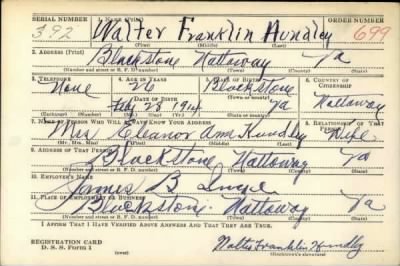 SERIAL NUMBER 1. NAME (Print) ORDER NUMBER
392 Walter Franklin Hundley 699
(First) (Middle) (Last)
2. ADDRESS (Print)
Blackstone Nottoway Va
(Number and street or R. F. D. number) (Town) (County) (State)
3. TELEPHONE 4. AGE IN YEARS 5. PLACE OF BIRTH 6. COUNTRY OF CITIZENSHIP
None 26 Blackstone
DATE OF BIRTH (Town or county)
23 1914 Va Nottoway
(Exchange) (Number) (Mo.) (Day) (Yr.) (State or country)
7. NAME OF PERSON WHO WILL ALWAYS KNOW YOUR ADDRESS 8. RELATIONSHIP OF THAT PERSON
Mrs Eleanor Ann Hundley Wife
(Mr., Mrs., Miss) (First) (Middle) (Last)
9. ADDRESS OF THAT PERSON
Blackstone Nottoway Va
(Number and street or R. F. D. number) (Town) (County) (State)
10. EMPLOYER'S NAME
James B
11. PLACE OF EMPLOYMENT OR BUSINESS
Blackstone Nottoway Va
(Number and street or R. F. D. number) (Town) (County) (State)
I AFFIRM THAT I HAVE VERIFIED ABOVE ANSWERS AND THAT THEY ARE TRUE.
REGISTRATION CARD
D. S. S. Form 1 (over) Walter Franklin Hundly
(Registrant's signature)